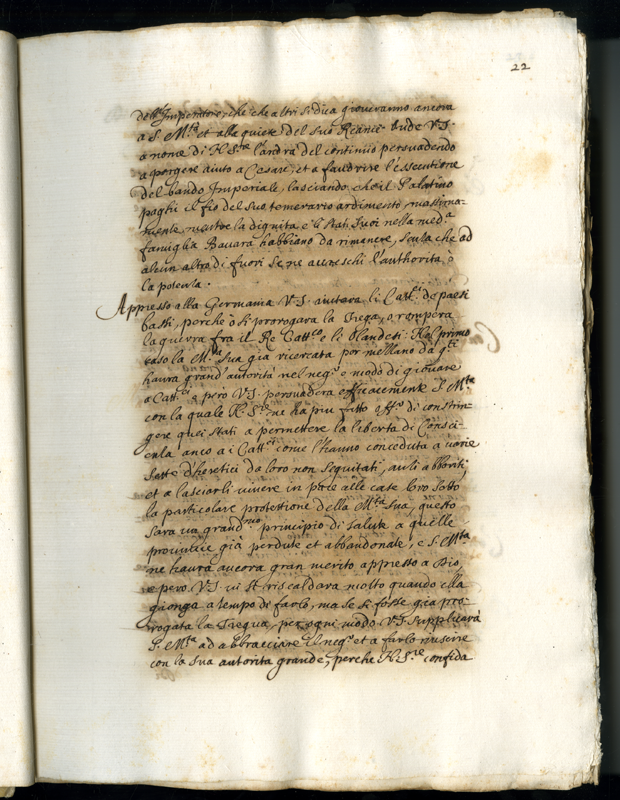 22
dell'Imperatore, che che altri si dica gioveranno ancora
a S. M.ta et alla quiete del suo Reame. onde V.S.
a nome di N. S.re l'andrà del continuo persuadendo
a porgere aiuto a Cesare, et a favorire l'essecutione
del bando Imperiale, lasciando che il Palatino
paghi il fio del suo temerario ardimento, massima-
mente mentre la dignita, e li stati suoi nella med.a
famiglia Bavara habbiano da rimanere, senza che ad
alcun altro di fuori se ne accreschi l'authorita, o
la potenza.
Appresso alla Germania V.S. aiutarà li Catt.ci de paesi
bassi, perche ò si prorogara la Tregua, o rompera
la guerra fra il Re Catt.co e li olandesi. Nel primo
caso la M.ta Sua già ricercata per mezzano da q.ti
haura grand'autorità nel neg.o e modo di giovare
a Catt.ci, e pero V.S. persuaderà efficacemente S. M.ta
con la quale N. S.re ne ha piu fatto off.o di constrin-
gere quei stati a permettere la liberta di Consci-
enza anco a i Catt.ci come l'hanno conceduta a varie
sette d'heretici da loro non seguitati, anzi abboriti,
et a lasciarli vivere in pace alle case loro sotto
la particolare protettione della M.ta Sua, questo
sara un grand.mo principio di salute a quelle
provincie già perdute et abbandonate, e S. M.ta
ne haurà ancora gran merito appresso a Dio,
e pero V.S. vi si riscaldara molto quando ella
gionga a tempo di farlo, ma se si fosse gia pro-
rogata la Tregua, per ogni modo V.S. supplicarà
S. M.ta ad abbracciare il neg.o et a farlo riuscire
con la sua autorita grande, perche N. S.re confida